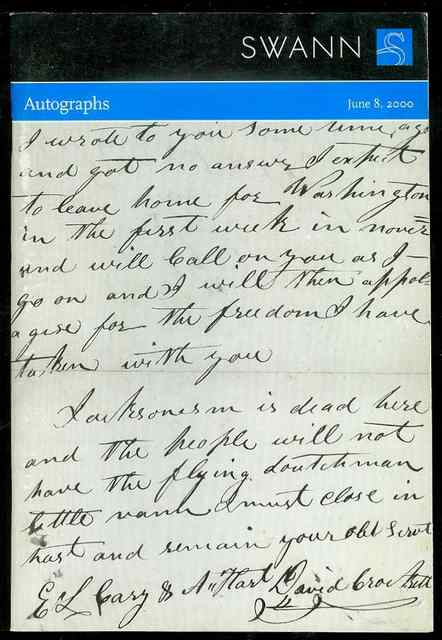 SWANN
Autographs
June 8, 2000
I wrote to you some time ago
and got no answer I expect
to leave home for Washington
in the first week in novem
and will Call on you as I
go on and I will then appol=
agise for the freedom I have
taken with you
Jacksonism is dead here
and the people will not
have the flying doutchman
little vann I must close in
hast and remain your obt servt
E L Cary & A Hart David Crockett